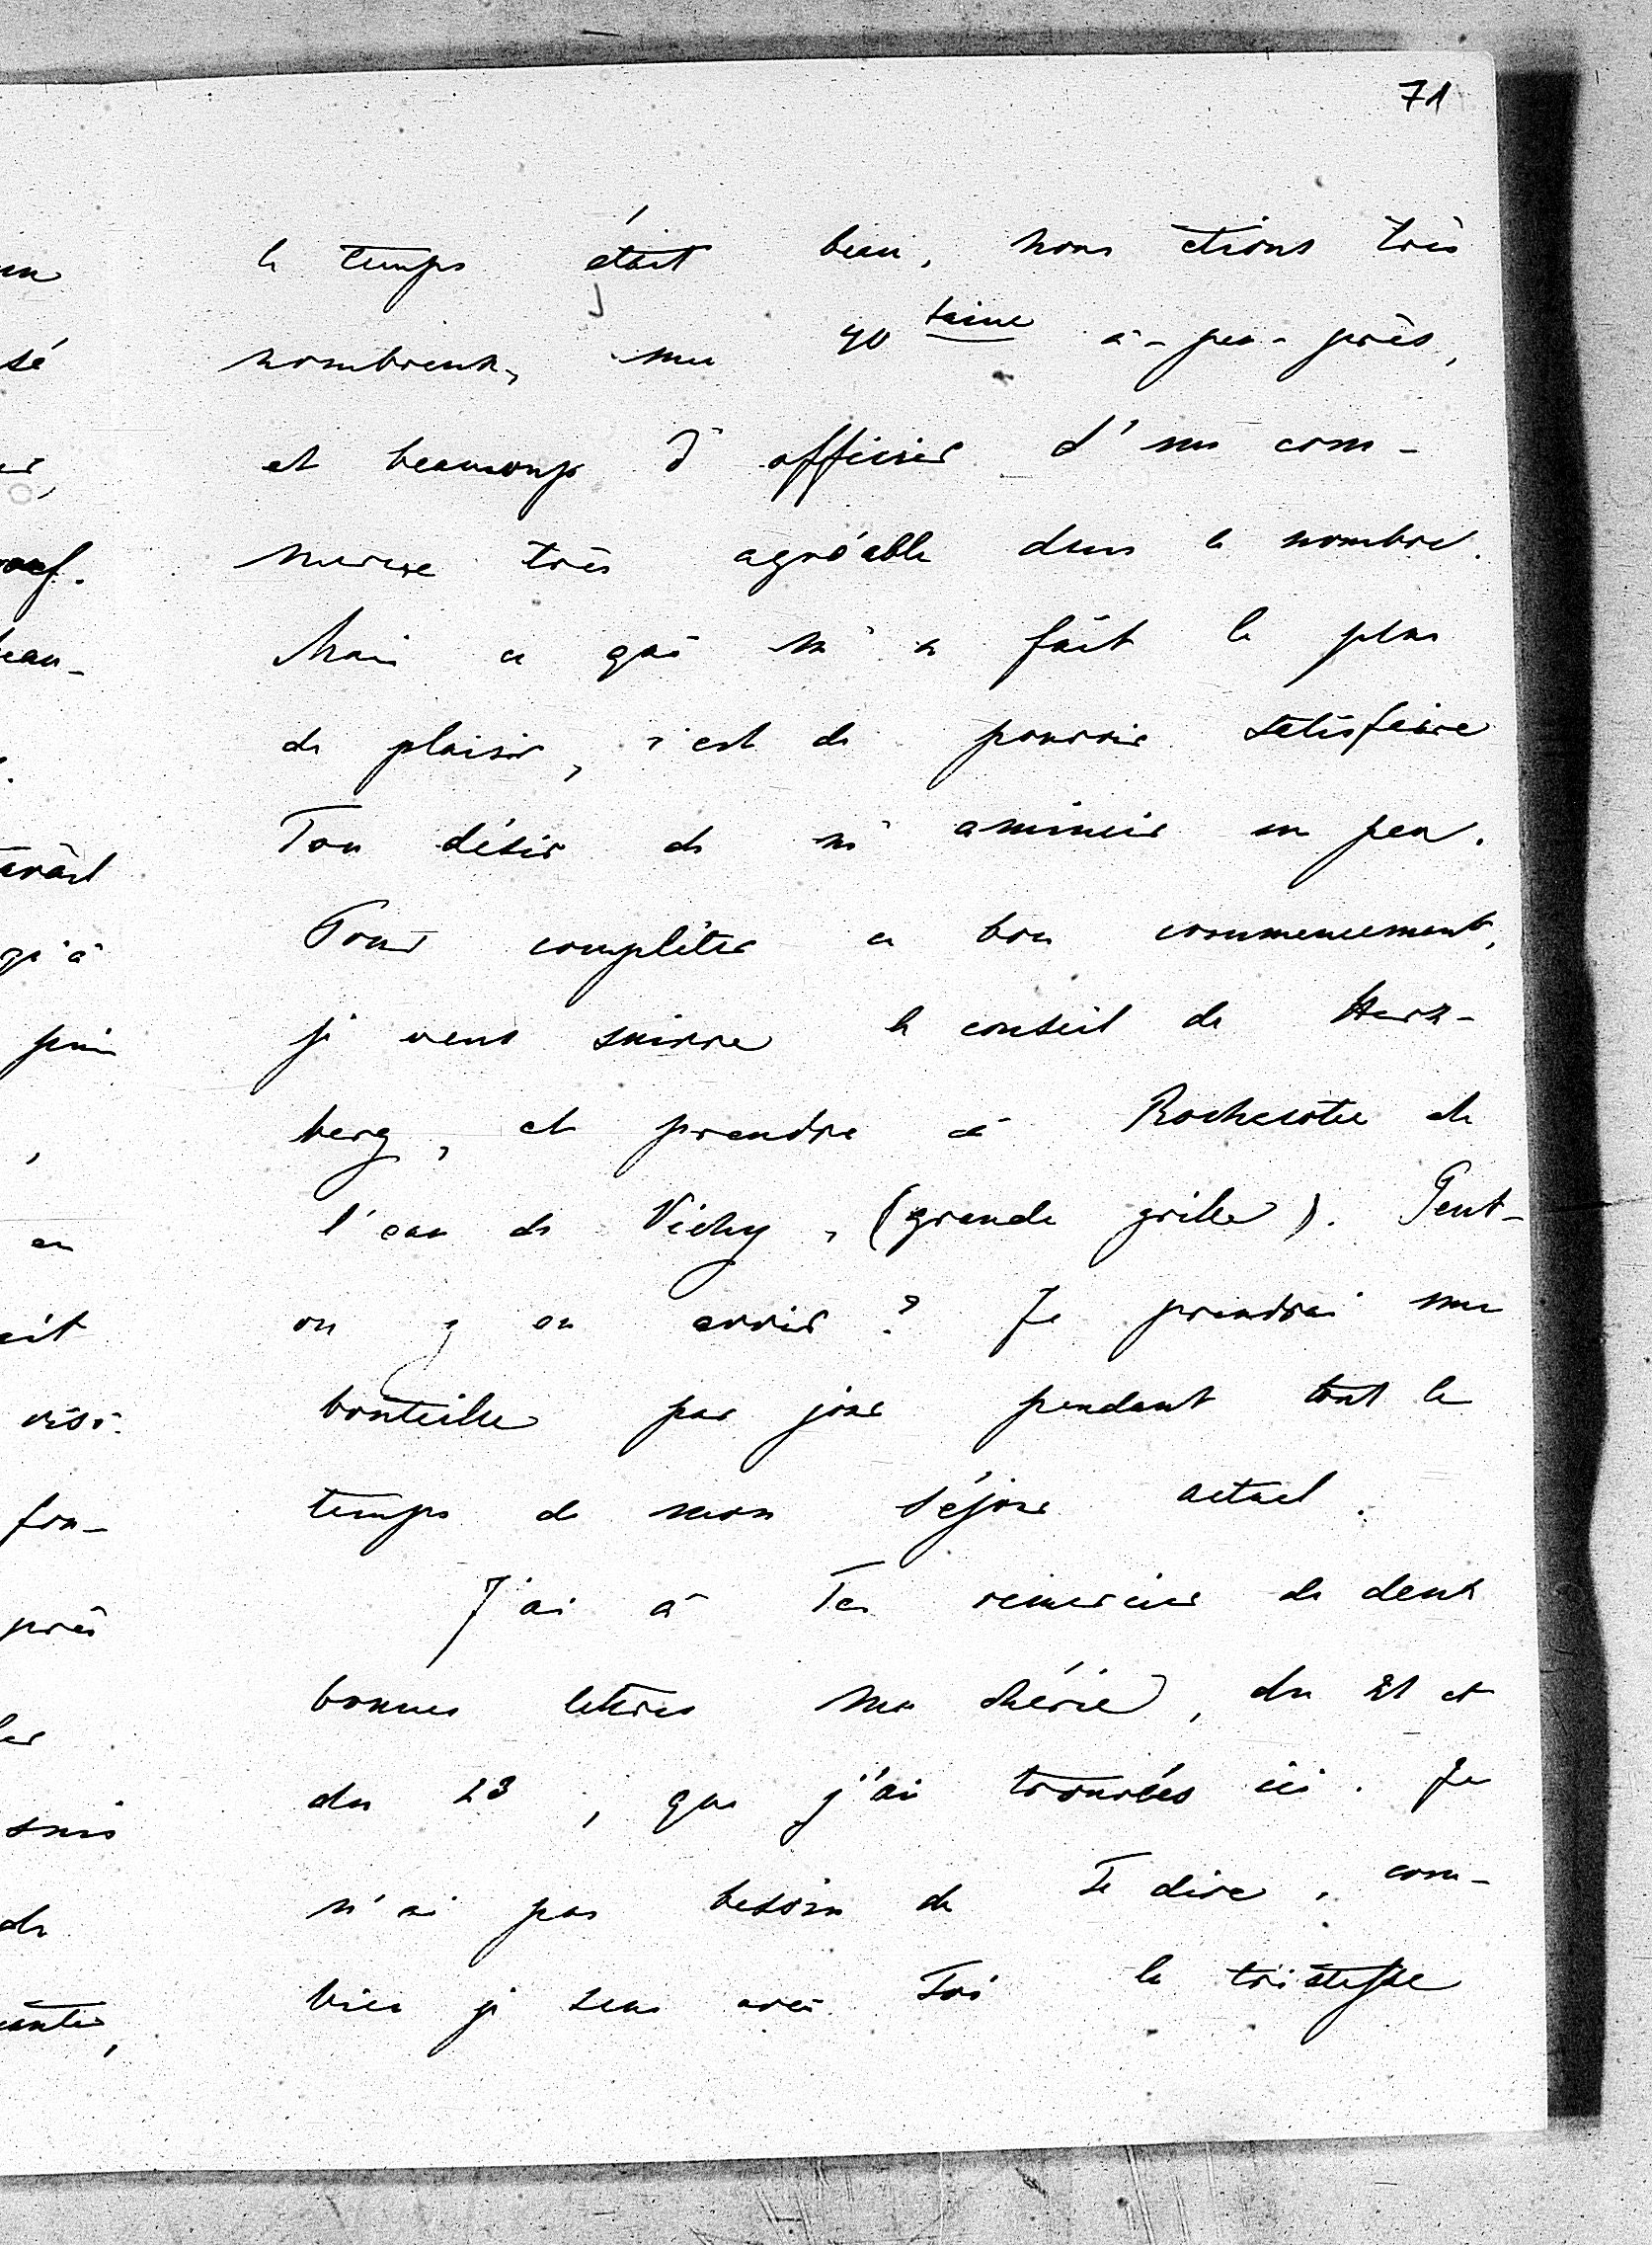 71
le temps était beau, nous étions très
nombreux, une 40taine à-peu-près,
et beaucoup d'officiers d'un com-
merce très agréable dans le nombre.
Mais ce qui m'a fait le plus
de plaisir, c'est de pouvoir satisfaire
Ton désir de m'amincir un peu.
Pour compléter ce bon commencement,
je veux suivre le conseil de Herz-
berg, et prendre à Rochecotte de
l'eau de Vichy, (grande grille). Peut-
on y en avoir ? Je prendrai une
bouteille par jour pendant tout le
temps de mon séjour actuel.
J'ai à Te remercier de deux
bonnes lettres ma chérie, du 21 et
du 23, que j'ai trouvées ici. Je
n'ai pas besoin de Te dire, com-
bien je sens avec Toi la tristesse